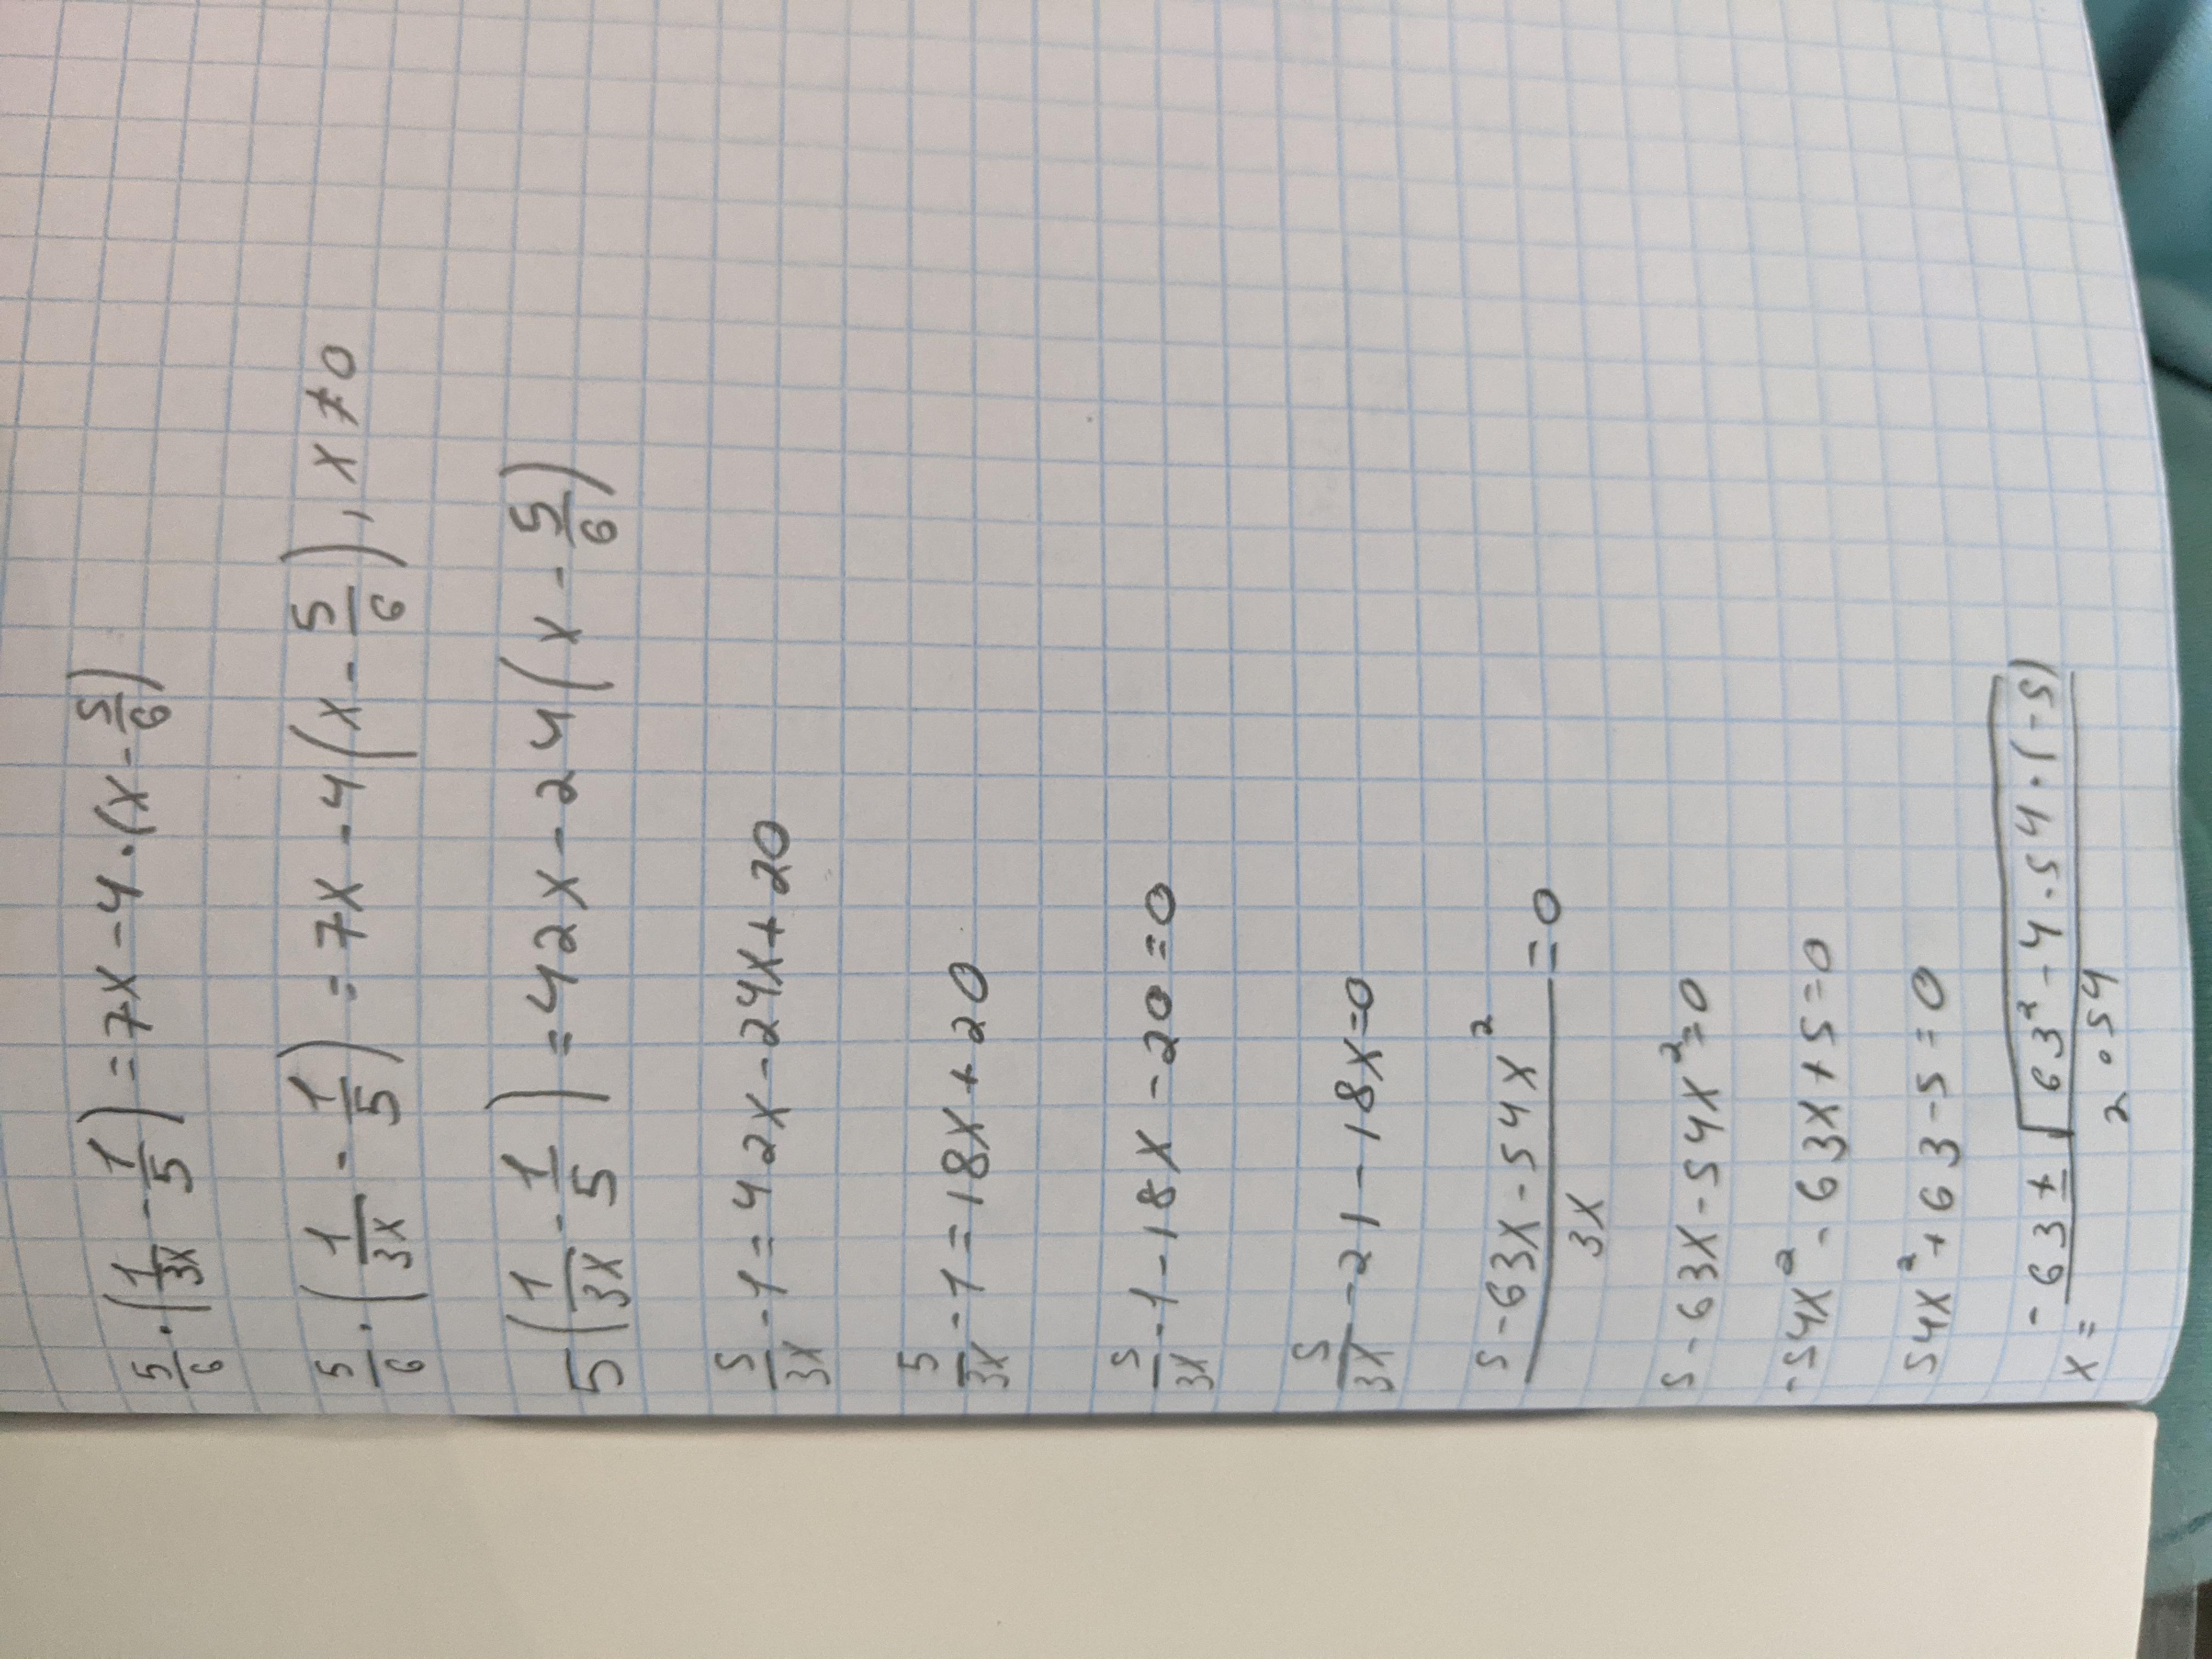 5/6 · (1/3x - 1/5) = 7x - 4 · (x - 5/6)
5/6 · (1/3x - 1/5) = 7x - 4(x - 5/6), x ≠ 0
5(1/3x - 1/5) = 42x - 24(x - 5/6)
5/3x - 1 = 42x - 24x + 20
5/3x - 1 = 18x + 20
5/3x - 1 - 18x - 20 = 0
5/3x - 21 - 18x = 0
5 - 63x - 54x² / 3x = 0
5 - 63x - 54x² = 0
-54x² - 63x + 5 = 0
54x² + 63 - 5 = 0
x = -63 ± √(63² - 4 · 54 · (-5) / 2 · 54